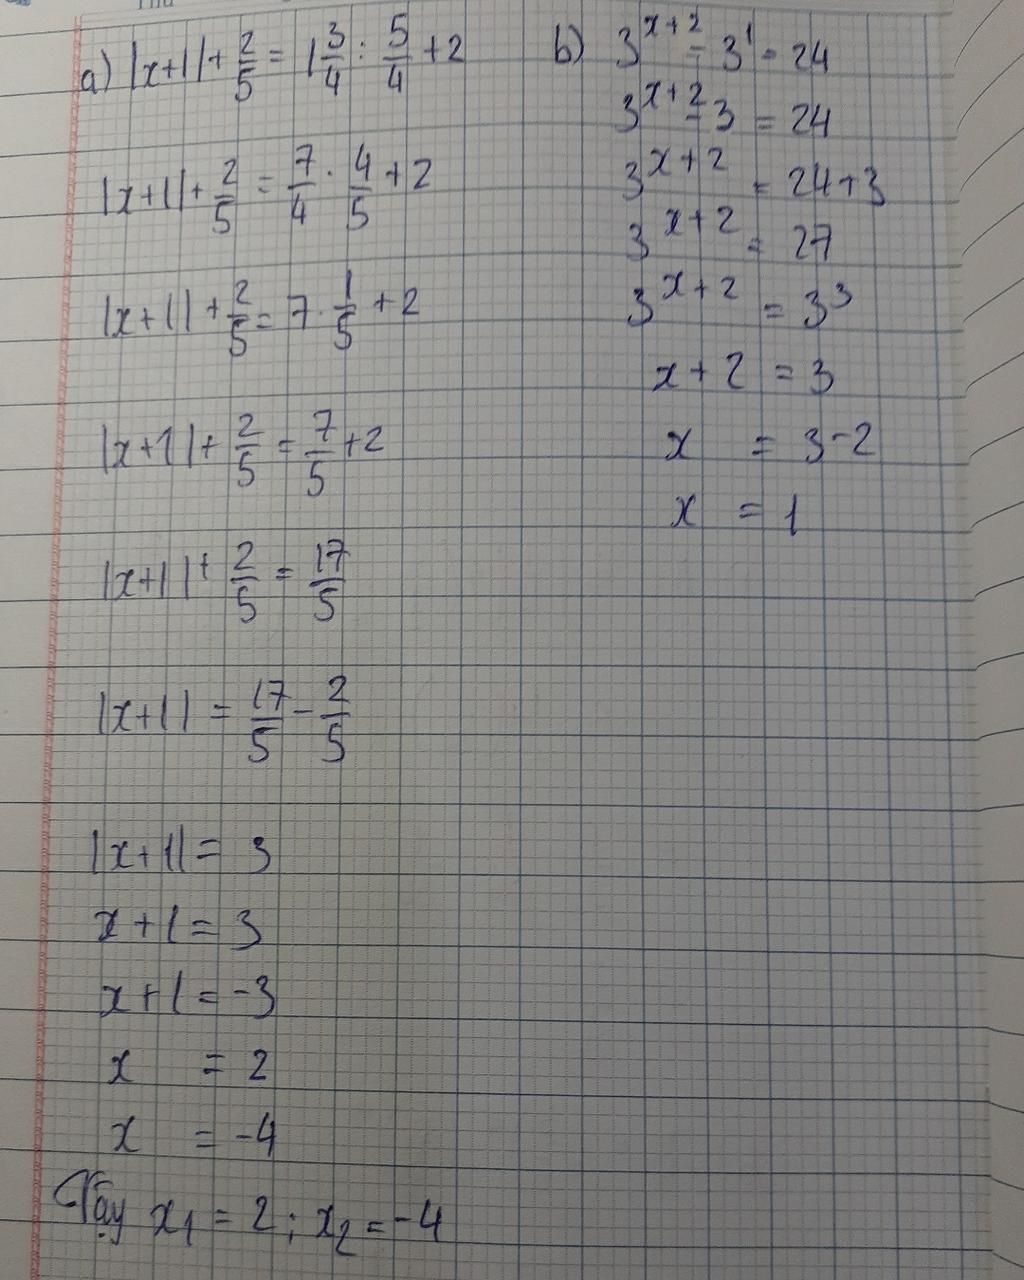 a) |x+1| + 2/5 = 1 3/4 : 5/4 + 2
|x+1| + 2/5 = 7/4 . 4/5 + 2
|x+1| + 2/5 = 7 . 1/5 + 2
|x+1| + 2/5 = 7/5 + 2
|x+1| + 2/5 = 17/5
|x+1| = 17/5 - 2/5
|x+1| = 3
x + 1 = 3
x + 1 = -3
x = 2
x = -4
Vậy x₁ = 2 ; x₂ = -4
b) 3^(x+2) - 3^1 = 24
3^(x+2) - 3 = 24
3^(x+2) = 24 + 3
3^(x+2) = 27
3^(x+2) = 3^3
x + 2 = 3
x = 3 - 2
x = 1